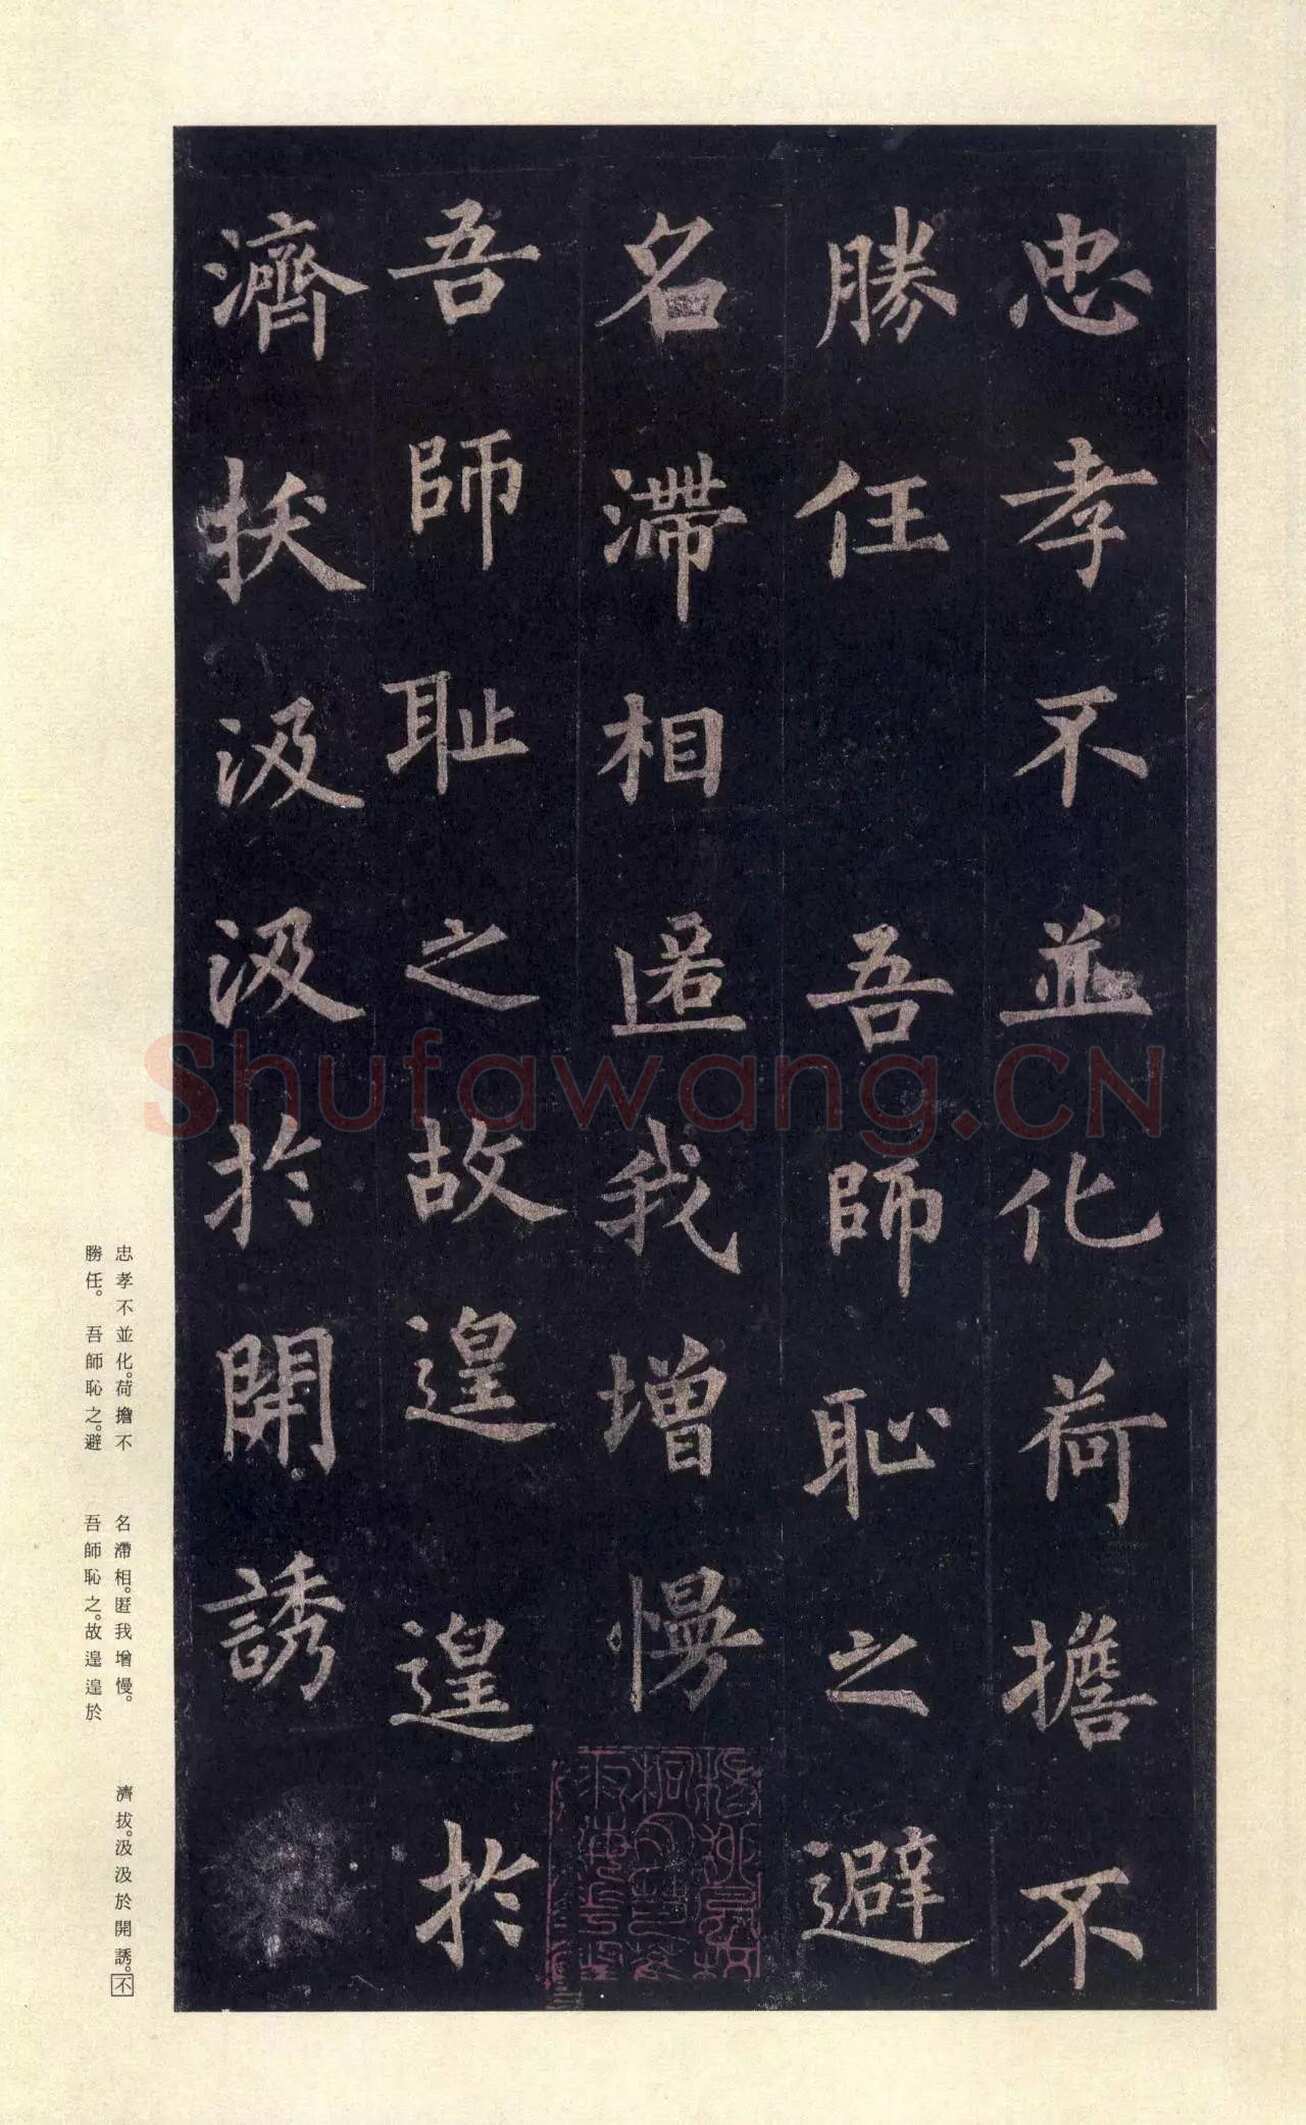 忠孝不並化荷擔不
勝任 吾師恥之避
名滯相匿我增慢
吾師耻之故遑遑於
濟拔汲汲於開誘
忠孝不並化。荷擔不
勝任。 吾師恥之。避
名滯相。匿我增慢。
吾師恥之。故遑遑於
濟拔。汲汲於開誘。不
Shufawang.CN